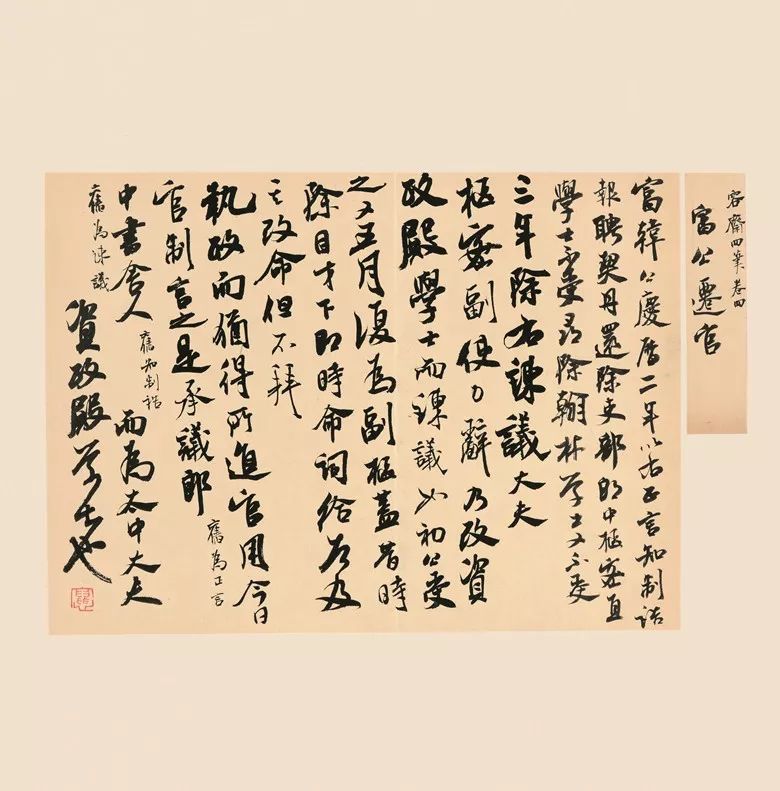 容齋四筆卷四
富公遷官
富韓公慶曆二年以右正言知制誥
報聘契丹還除吏部郎中樞密直
學士不受尋除翰林學士又不受
三年除右諫議大夫
樞密副使力辭乃改資
政殿學士而諫議如初公受
之又五月復為副樞蓋昔時
除目才下即時命詞給告及
其改命但不拜
執政而猶得所進官用今日
官制言之是承議郎 舊為正言
中書舍人 舊知制誥 而為太中大夫
舊為諫議 資政殿學士也